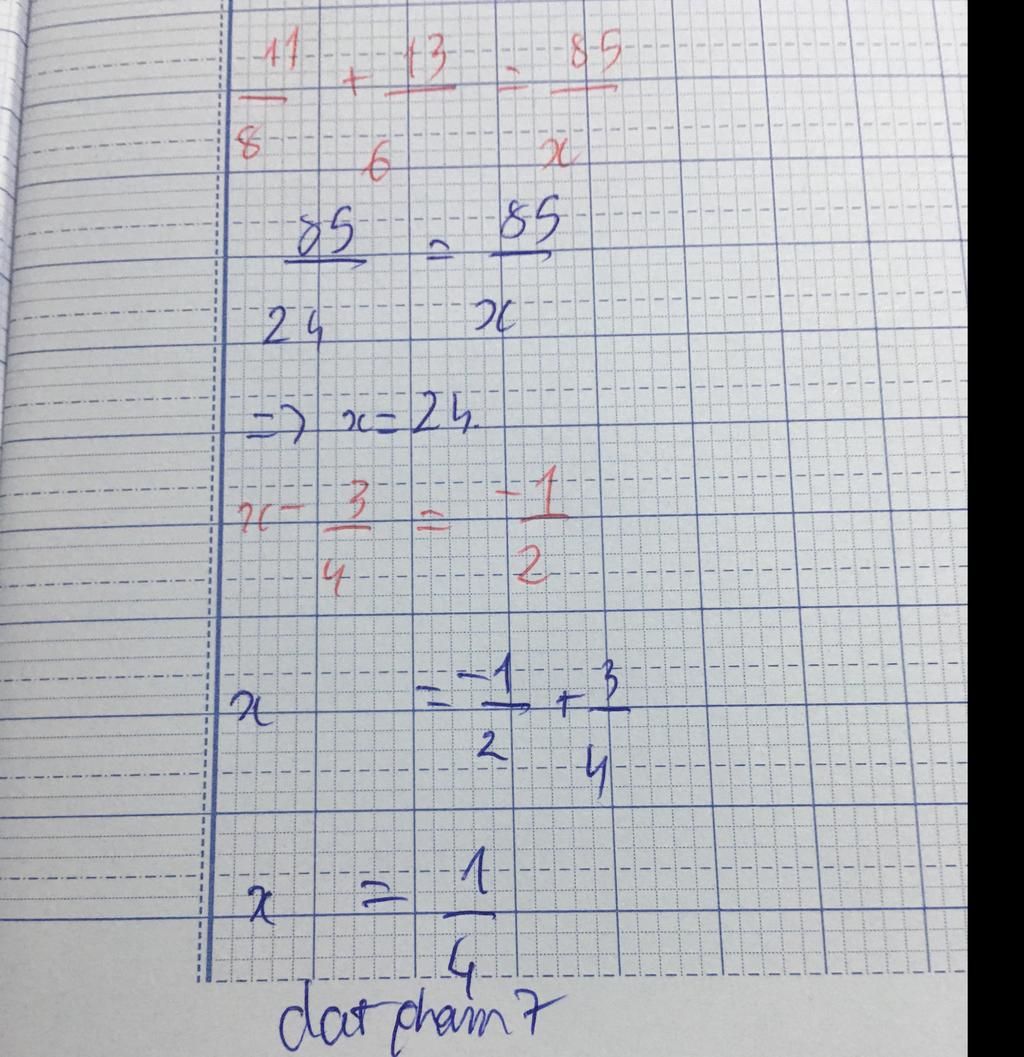 11/8 + 13/6 = 85/x
85/24 = 85/x
=> x = 24.
x - 3/4 = -1/2
x = -1/2 + 3/4
x = 1/4
dat pham 7